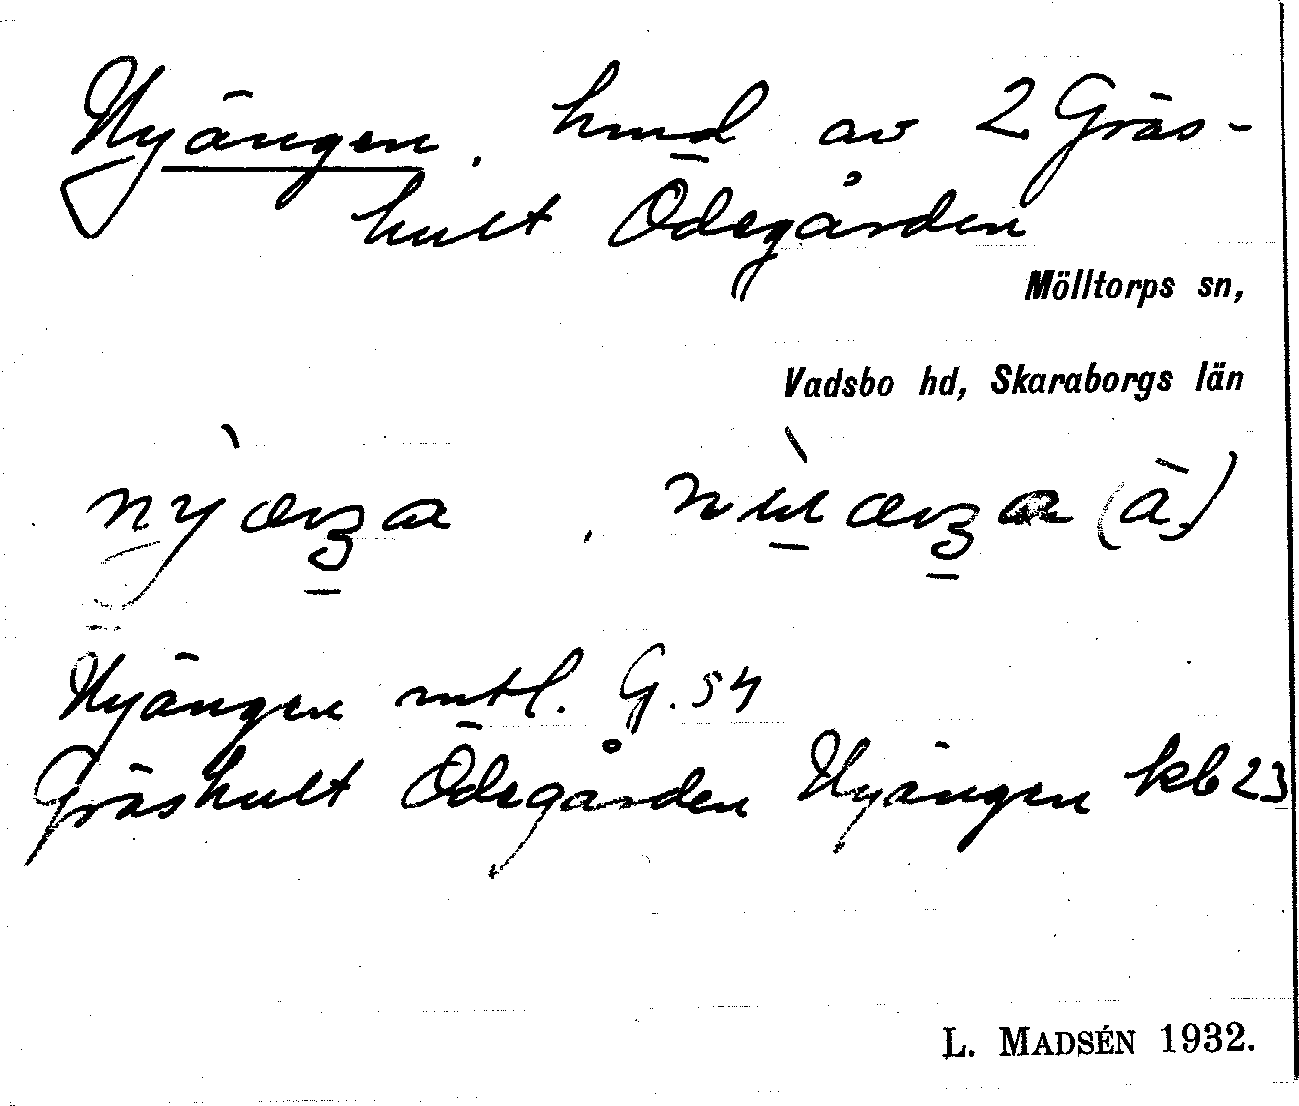 Nyängen. hmd av 2 Gräs-
hult Ödegården
Mölltorps sn,
Vadsbo hd, Skaraborgs län
Nyängen mtl. G. 54
Gräshult Ödegården Nyängen kb 23
L. MADSÉN 1932.